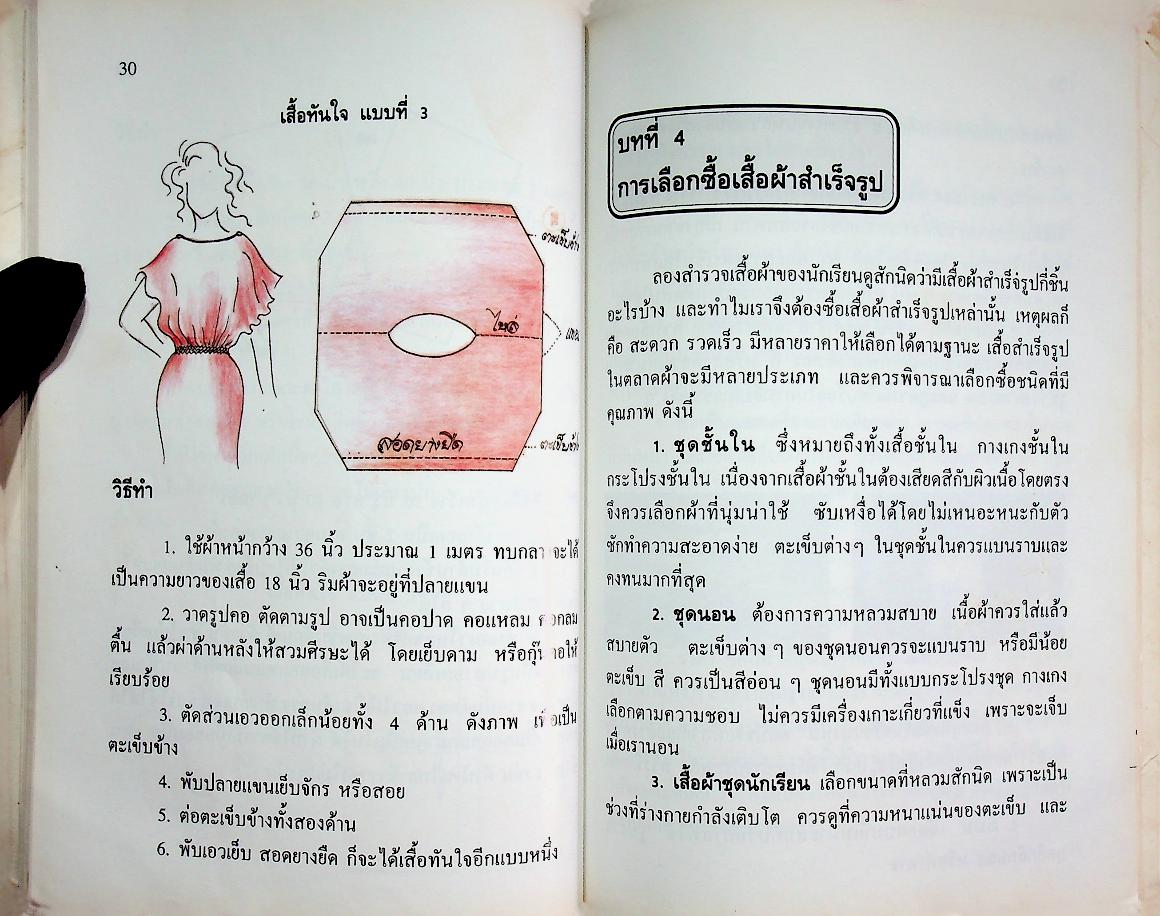 30
เสื้อทันใจ แบบที่ 3
ตะเข็บข้าง
ไหล่
แขน
สอดยางยืด
ตะเข็บข้าง
วิธีทำ
1. ใช้ผ้าหน้ากว้าง 36 นิ้ว ประมาณ 1 เมตร ทบกลาง จะได้
เป็นความยาวของเสื้อ 18 นิ้ว ริมผ้าจะอยู่ที่ปลายแขน
2. วาดรูปคอ ตัดตามรูป อาจเป็นคอปาด คอแหลม คอกลม
ตื้น แล้วผ่าด้านหลังให้สวมศีรษะได้ โดยเย็บดาม หรือกุ๊นคอให้
เรียบร้อย
3. ตัดส่วนเอวออกเล็กน้อยทั้ง 4 ด้าน ดังภาพ เพื่อเป็น
ตะเข็บข้าง
4. พับปลายแขนเย็บจักร หรือสอย
5. ต่อตะเข็บข้างทั้งสองด้าน
6. พับเอวเย็บ สอดยางยืด ก็จะได้เสื้อทันใจอีกแบบหนึ่ง
บทที่ 4
การเลือกซื้อเสื้อผ้าสำเร็จรูป
ลองสำรวจเสื้อผ้าของนักเรียนดูสักนิดว่ามีเสื้อผ้าสำเร็จรูปกี่ชิ้น
อะไรบ้าง และทำไมเราจึงต้องซื้อเสื้อผ้าสำเร็จรูปเหล่านั้น เหตุผลก็
คือ สะดวก รวดเร็ว มีหลายราคาให้เลือกได้ตามฐานะ เสื้อสำเร็จรูป
ในตลาดผ้าจะมีหลายประเภท และควรพิจารณาเลือกซื้อชนิดที่มี
คุณภาพ ดังนี้
1. ชุดชั้นใน ซึ่งหมายถึงทั้งเสื้อชั้นใน กางเกงชั้นใน
กระโปรงชั้นใน เนื่องจากเสื้อผ้าชั้นในต้องเสียดสีกับผิวเนื้อโดยตรง
จึงควรเลือกผ้าที่นุ่มน่าใช้ ซับเหงื่อได้โดยไม่เหนอะหนะกับตัว
ซักทำความสะอาดง่าย ตะเข็บต่างๆ ในชุดชั้นในควรแบนราบและ
คงทนมากที่สุด
2. ชุดนอน ต้องการความหลวมสบาย เนื้อผ้าควรใส่แล้ว
สบายตัว ตะเข็บต่าง ๆ ของชุดนอนควรจะแบนราบ หรือมีน้อย
ตะเข็บ สี ควรเป็นสีอ่อน ๆ ชุดนอนมีทั้งแบบกระโปรงชุด กางเกง
เลือกตามความชอบ ไม่ควรมีเครื่องเกาะเกี่ยวที่แข็ง เพราะจะเจ็บ
เมื่อเรานอน
3. เสื้อผ้าชุดนักเรียน เลือกขนาดที่หลวมสักนิด เพราะเป็น
ช่วงที่ร่างกายกำลังเติบโต ควรดูที่ความหนาแน่นของตะเข็บ และ